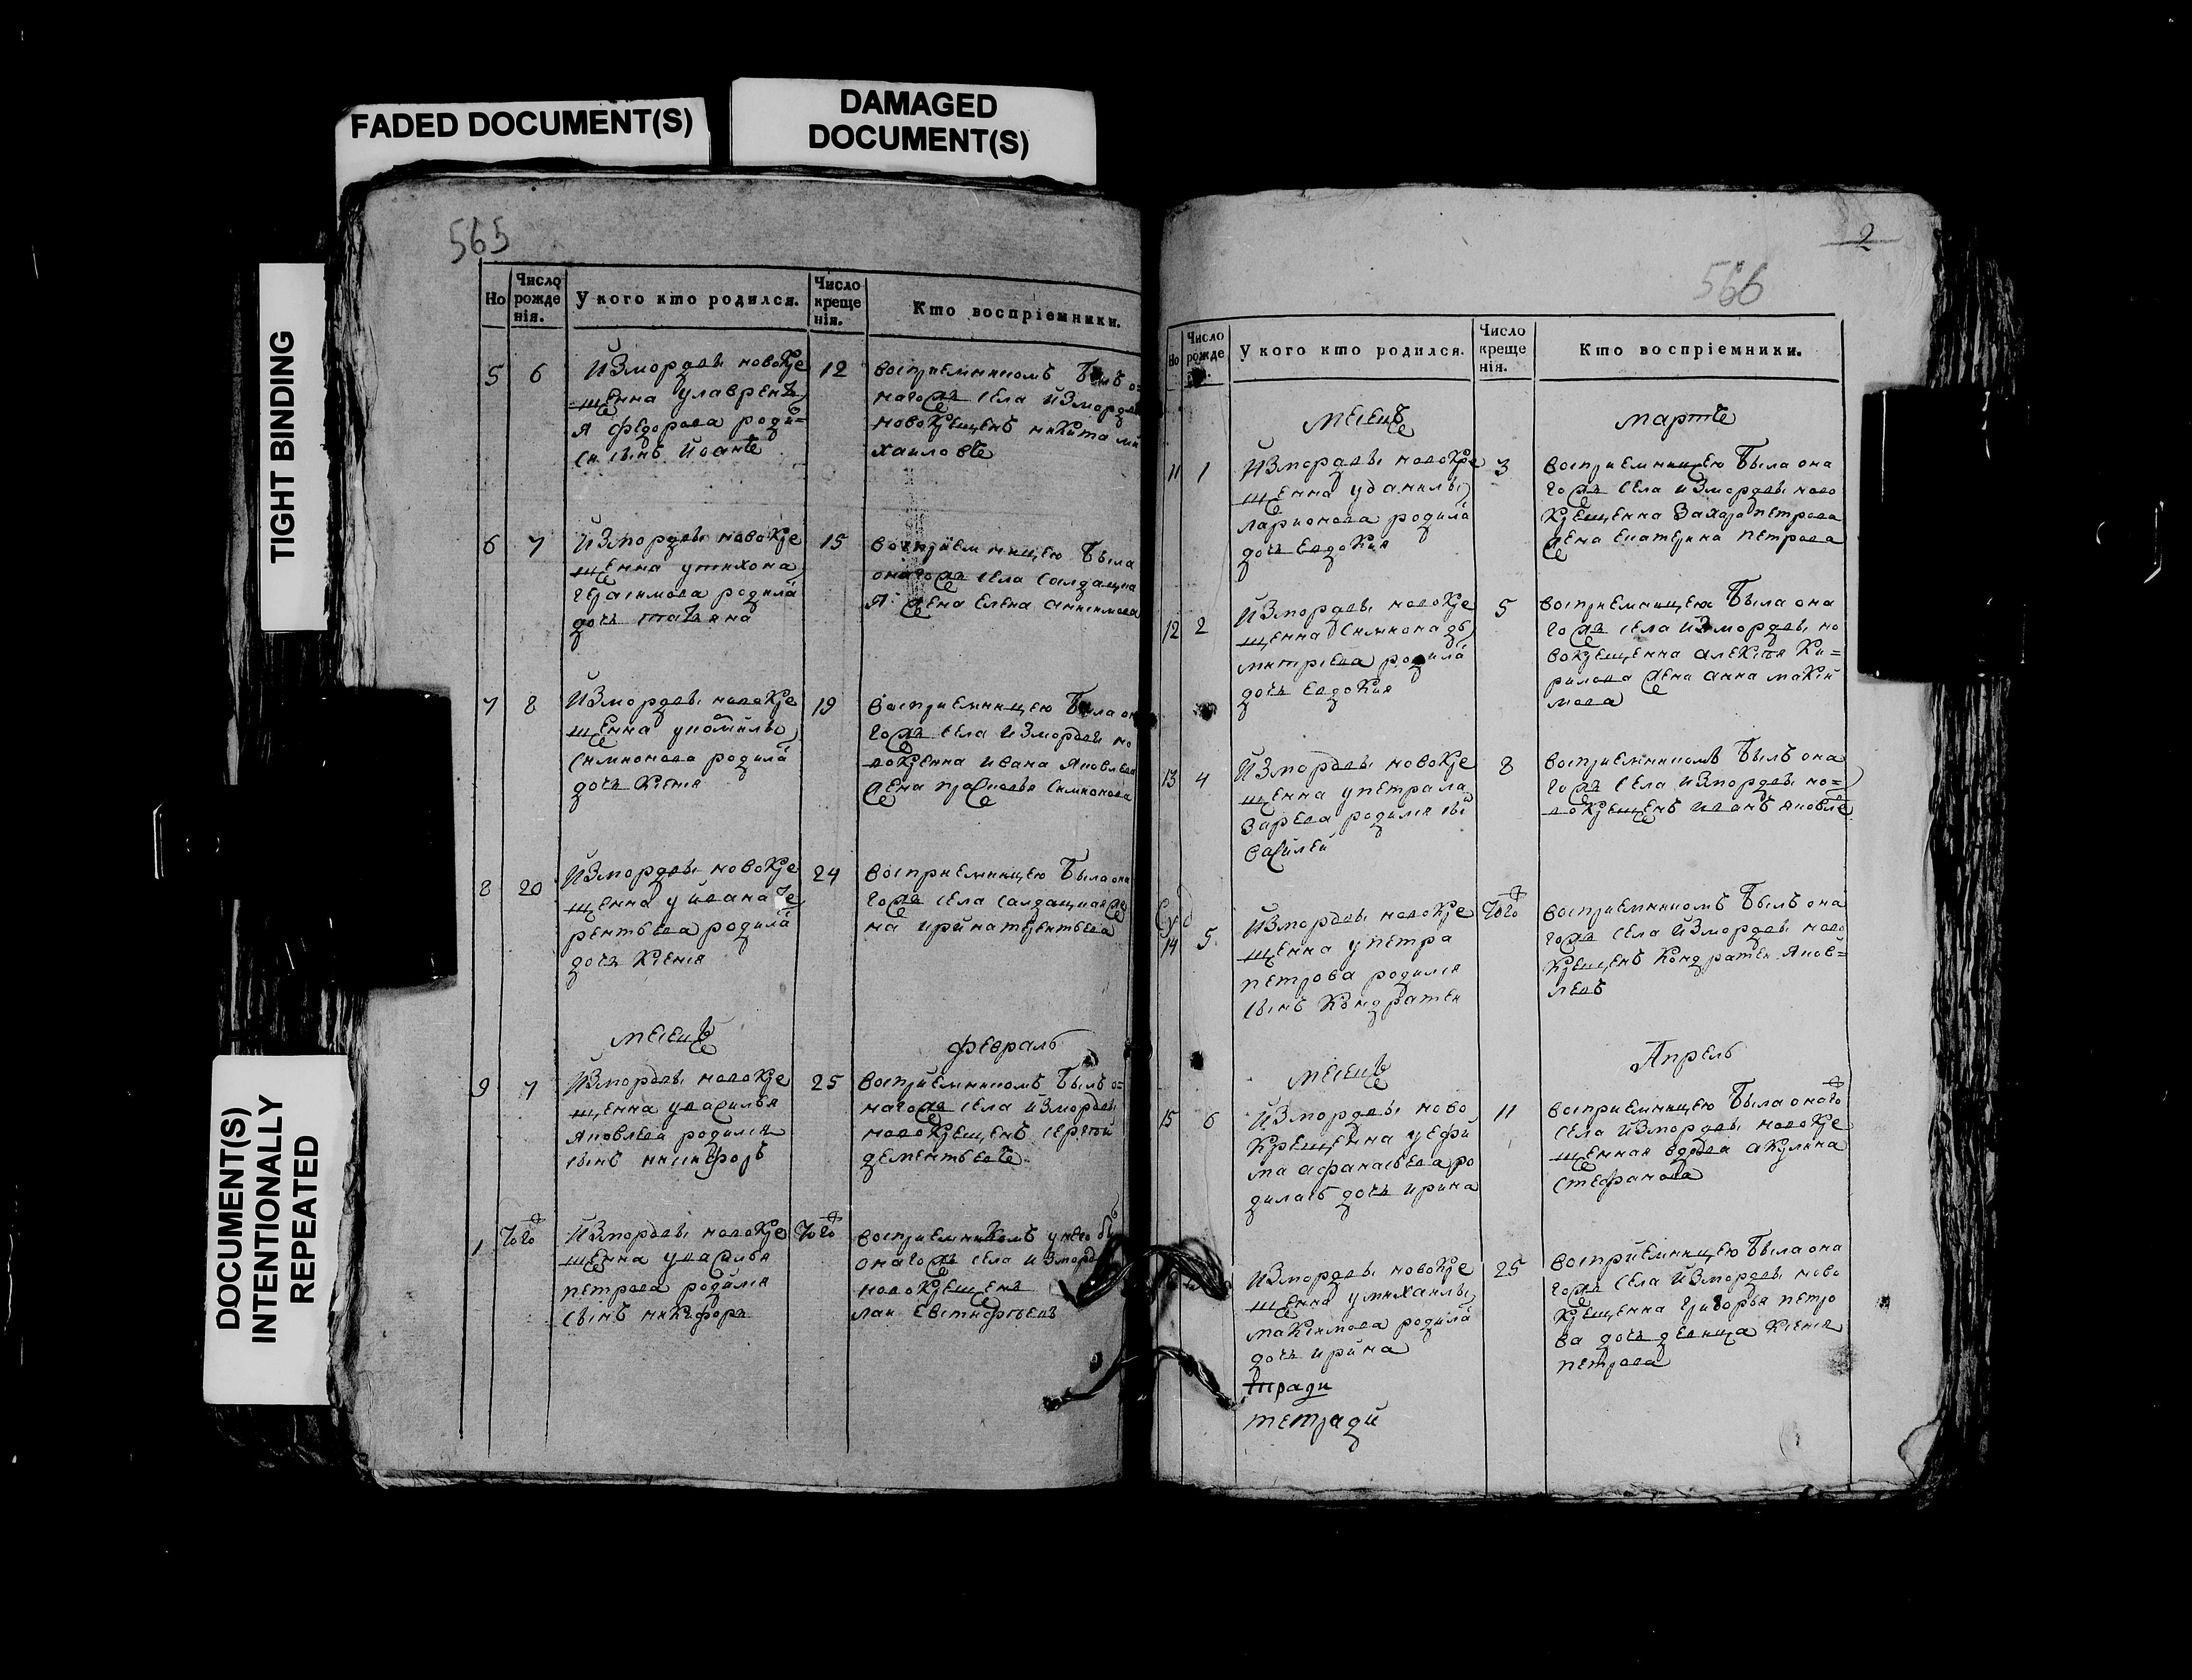 FADED DOCUMENT(S)
DAMAGED
DOCUMENT(S)
TIGHT BINDING
DOCUMENT(S)
INTENTIONALLY
REPEATED
565
Но
Число рожде нія.
У кого кто родился.
Число креще нія.
Кто воспріемники.
5 6
Измордвы новокре
щенна улаврентъ
я федорова роди=
ся сынъ иоанъ
12
восприемникомъ былъ о=
ногожъ села измордвы
новокрещенъ никита ми
хаиловъ
6 7
Измордвы новокре
щенна утихона
герасимова родила
дочь татьяна
15
восприемницею была
оногожъ села салдацка
я жена елена анисимова
7 8
Измордвы новокре
щенна упомилы
симионова родила
дочь ксения
19
восприемницею была он
гожъ села измордвы но
вокренна ивана яковлева
жена прасковья симионова
8 20
Измордвы новокре
щенна уивана те
рентьева родила
дочь ксения
24
восприемницею была она
гожъ села салдацкая же
на
месецъ
февраль
9 7
Измордвы новокре
щенна увасилья
яковлева родился
сынъ никифоръ
25
восприемникомъ былъ о=
ногожъ села измордвы
новокрещенъ сергѣй
дементьевъ
1 того
Измордвы новокре
щенна увасилья
петрова родился
сынъ никифоръ
того
восприемникомъ унего бы
оногожъ села измордв
новокрещенъ
евстифѣевъ
2
566
Но
Число рожде
У кого кто родился.
Число креще нія.
Кто воспріемники.
месецъ
мартъ
11 1
Измордвы новокре
щенна уданилы
ларионова родила
дочь евдокия
3
восприемницею была она
гожъ села измордвы ново
крещенна захара петрова
жена екатерина петрова
12 2
Измордвы новокре
щенна симиона дъ
митриева родила
дочь евдокия
5
восприемницею была она
гожъ села измордвы но
вокрещенна алексѣя ки=
рилова жена анна макси
мова
13 4
Измордвы новокре
щенна упетрала
зарева родился сы
василей
8
восприемникомъ былъ она
гожъ села измордвы но=
вокрещенъ иванъ яковле
14 5
Измордвы новокре
щенна упетра
петрова родился
сынъ кондратеи
того
восприемникомъ былъ она
гожъ села измордвы ново
крещенъ кондратеи яков=
левъ
месецъ
Апрель
15 6
Измордвы ново
крещенна уефи
ма афанасьева ро
дилась дочь ирина
11
восприемницею была оного
села измордвы новокре
щенная вдова акулина
стефанова
Измордвы новокре
щенна умихаилы
максимова родила
дочь ирина
25
восприемницею была она
гожъ села измордвы ново
крещенна григорья петро
ва дочь девица ксения
петрова
тради
тетради